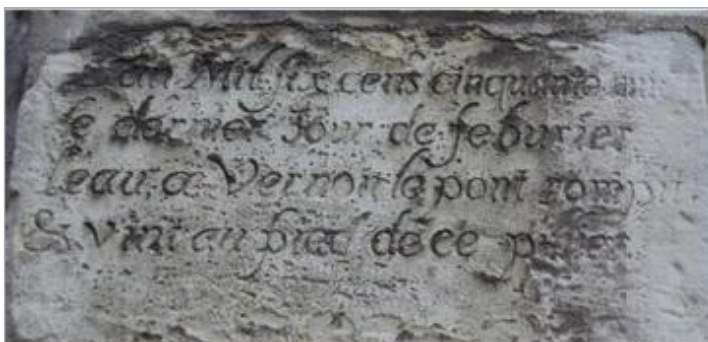 L'an Mil six cens cinquante huit
le dernier Jour de feburier
leau a Vernon le pont rompit
& vint au pied de ce pilier